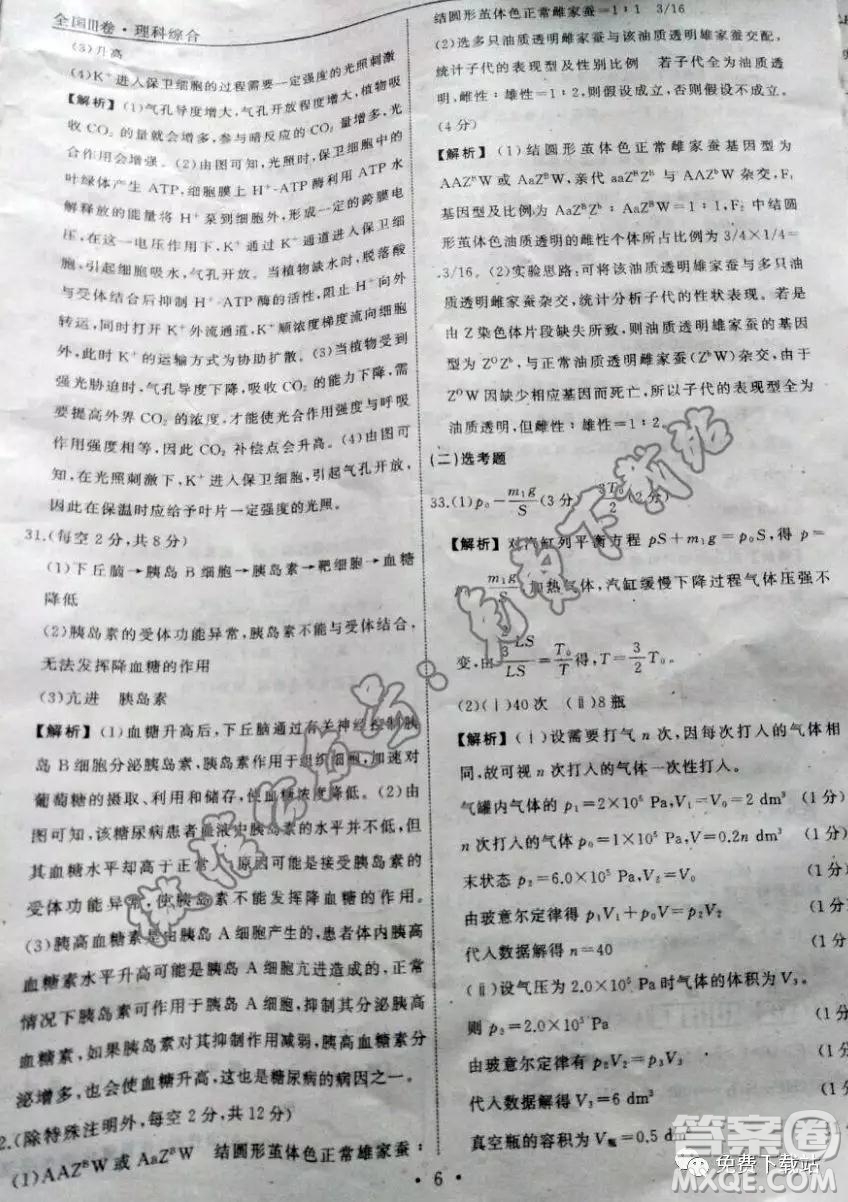 全国Ⅲ卷·理科综合
(3)升高
(4)K⁺进入保卫细胞的过程需要一定强度的光照刺激
【解析】(1)气孔导度增大,气孔开放程度增大,植物吸
收CO₂的量就会增多,参与暗反应的CO₂量增多,光
合作用会增强。(2)由图可知,光照时,保卫细胞中的
叶绿体产生ATP,细胞膜上H⁺-ATP酶利用ATP水
解释放的能量将H⁺泵到细胞外,形成一定的跨膜电
压,在这一电压作用下,K⁺通过K⁺通道进入保卫细
胞,引起细胞吸水,气孔开放。当植物缺水时,脱落酸
与受体结合后抑制H⁺-ATP酶的活性,阻止H⁺向外
转运,同时打开K⁺外流通道,K⁺顺浓度梯度流向细胞
外,此时K⁺的运输方式为协助扩散。(3)当植物受
强光胁迫时,气孔导度下降,吸收CO₂的能力下降,需
要提高外界CO₂的浓度,才能使光合作用强度与呼吸
作用强度相等,因此CO₂补偿点会升高。(4)由图可
知,在光照刺激下,K⁺进入保卫细胞,引起气孔开放,
因此在保温时应给予叶片一定强度的光照。
31.(每空2分,共8分)
(1)下丘脑→胰岛B细胞→胰岛素→靶细胞→血糖
降低
(2)胰岛素的受体功能异常,胰岛素不能与受体结合,
无法发挥降血糖的作用
(3)亢进 胰岛素
【解析】(1)血糖升高后,下丘脑通过有关神经控制胰
岛B细胞分泌胰岛素,胰岛素作用于组织细胞,加速对
葡萄糖的摄取、利用和储存,使血糖浓度降低。(2)由
图可知,该糖尿病患者血液中胰岛素的水平并不低,但
其血糖水平却高于正常人,原因可能是接受胰岛素的
受体功能异常,使胰岛素不能发挥降血糖的作用。
(3)胰高血糖素是由胰岛A细胞产生的,患者体内胰高
血糖素水平升高可能是胰岛A细胞亢进造成的,正常
情况下胰岛素可作用于胰岛A细胞,抑制其分泌胰高
血糖素,如果胰岛素对其抑制作用减弱,胰高血糖素分
泌增多,也会使血糖升高,这也是糖尿病的病因之一。
2.(除特殊注明外,每空2分,共12分)
(1)AAZᴮW或AaZᴮW 结圆形茧体色正常雄家蚕:
结圆形茧体色正常雌家蚕=1:1 3/16
(2)选多只油质透明雌家蚕与该油质透明雄家蚕交配,
统计子代的表现型及性别比例 若子代全为油质透
明,雌性:雄性=1:2,则假设成立,否则假设不成立。
(4分)
【解析】(1)结圆形茧体色正常雌家蚕基因型为
AAZᴮW或AaZᴮW,亲代aaZᴮZᴮ与AAZᵇW杂交,F₁
基因型及比例为AaZᴮZᵇ:AaZᴮW=1:1,F₂中结圆
形茧体色油质透明的雌性个体所占比例为3/4×1/4=
3/16。(2)实验思路:可将该油质透明雄家蚕与多只油
质透明雌家蚕杂交,统计分析子代的性状表现。若是
由Z染色体片段缺失所致,则油质透明雄家蚕的基因
型为Z⁰Zᵇ,与正常油质透明雌家蚕(ZᵇW)杂交,由于
Z⁰W因缺少相应基因而死亡,所以子代的表现型全为
油质透明,但雌性:雄性=1:2。
(二)选考题
33.(1)p₀-m₁g/S(3分) 3T₀/2(2分)
【解析】对汽缸列平衡方程pS+m₁g=p₀S,得p=
m₁g/S 加热气体,汽缸缓慢下降过程气体压强不
变,由 (2/3 LS)/LS=T₀/T得,T=3/2 T₀。
(2)(ⅰ)40次 (ⅱ)8瓶
【解析】(ⅰ)设需要打气n次,因每次打入的气体相
同,故可视n次打入的气体一次性打入。
气罐内气体的p₁=2×10⁵ Pa,V₁=V₀=2 dm³ (1分)
n次打入的气体p₀=1×10⁵ Pa,V=0.2n dm³ (1分)
末状态p₂=6.0×10⁵ Pa,V₂=V₀ (1分)
由玻意尔定律得p₁V₁+p₀V=p₂V₀ (1分)
代入数据解得n=40 (1分)
(ⅱ)设气压为2.0×10⁵ Pa时气体的体积为V₃。
则p₃=2.0×10⁵ Pa (1分
由玻意尔定律有p₂V₂=p₃V₃ (1分
代入数据解得V₃=6 dm³ (1分
真空瓶的容积为V瓶=0.5 dm³
·6·
答案圈
免费下载站